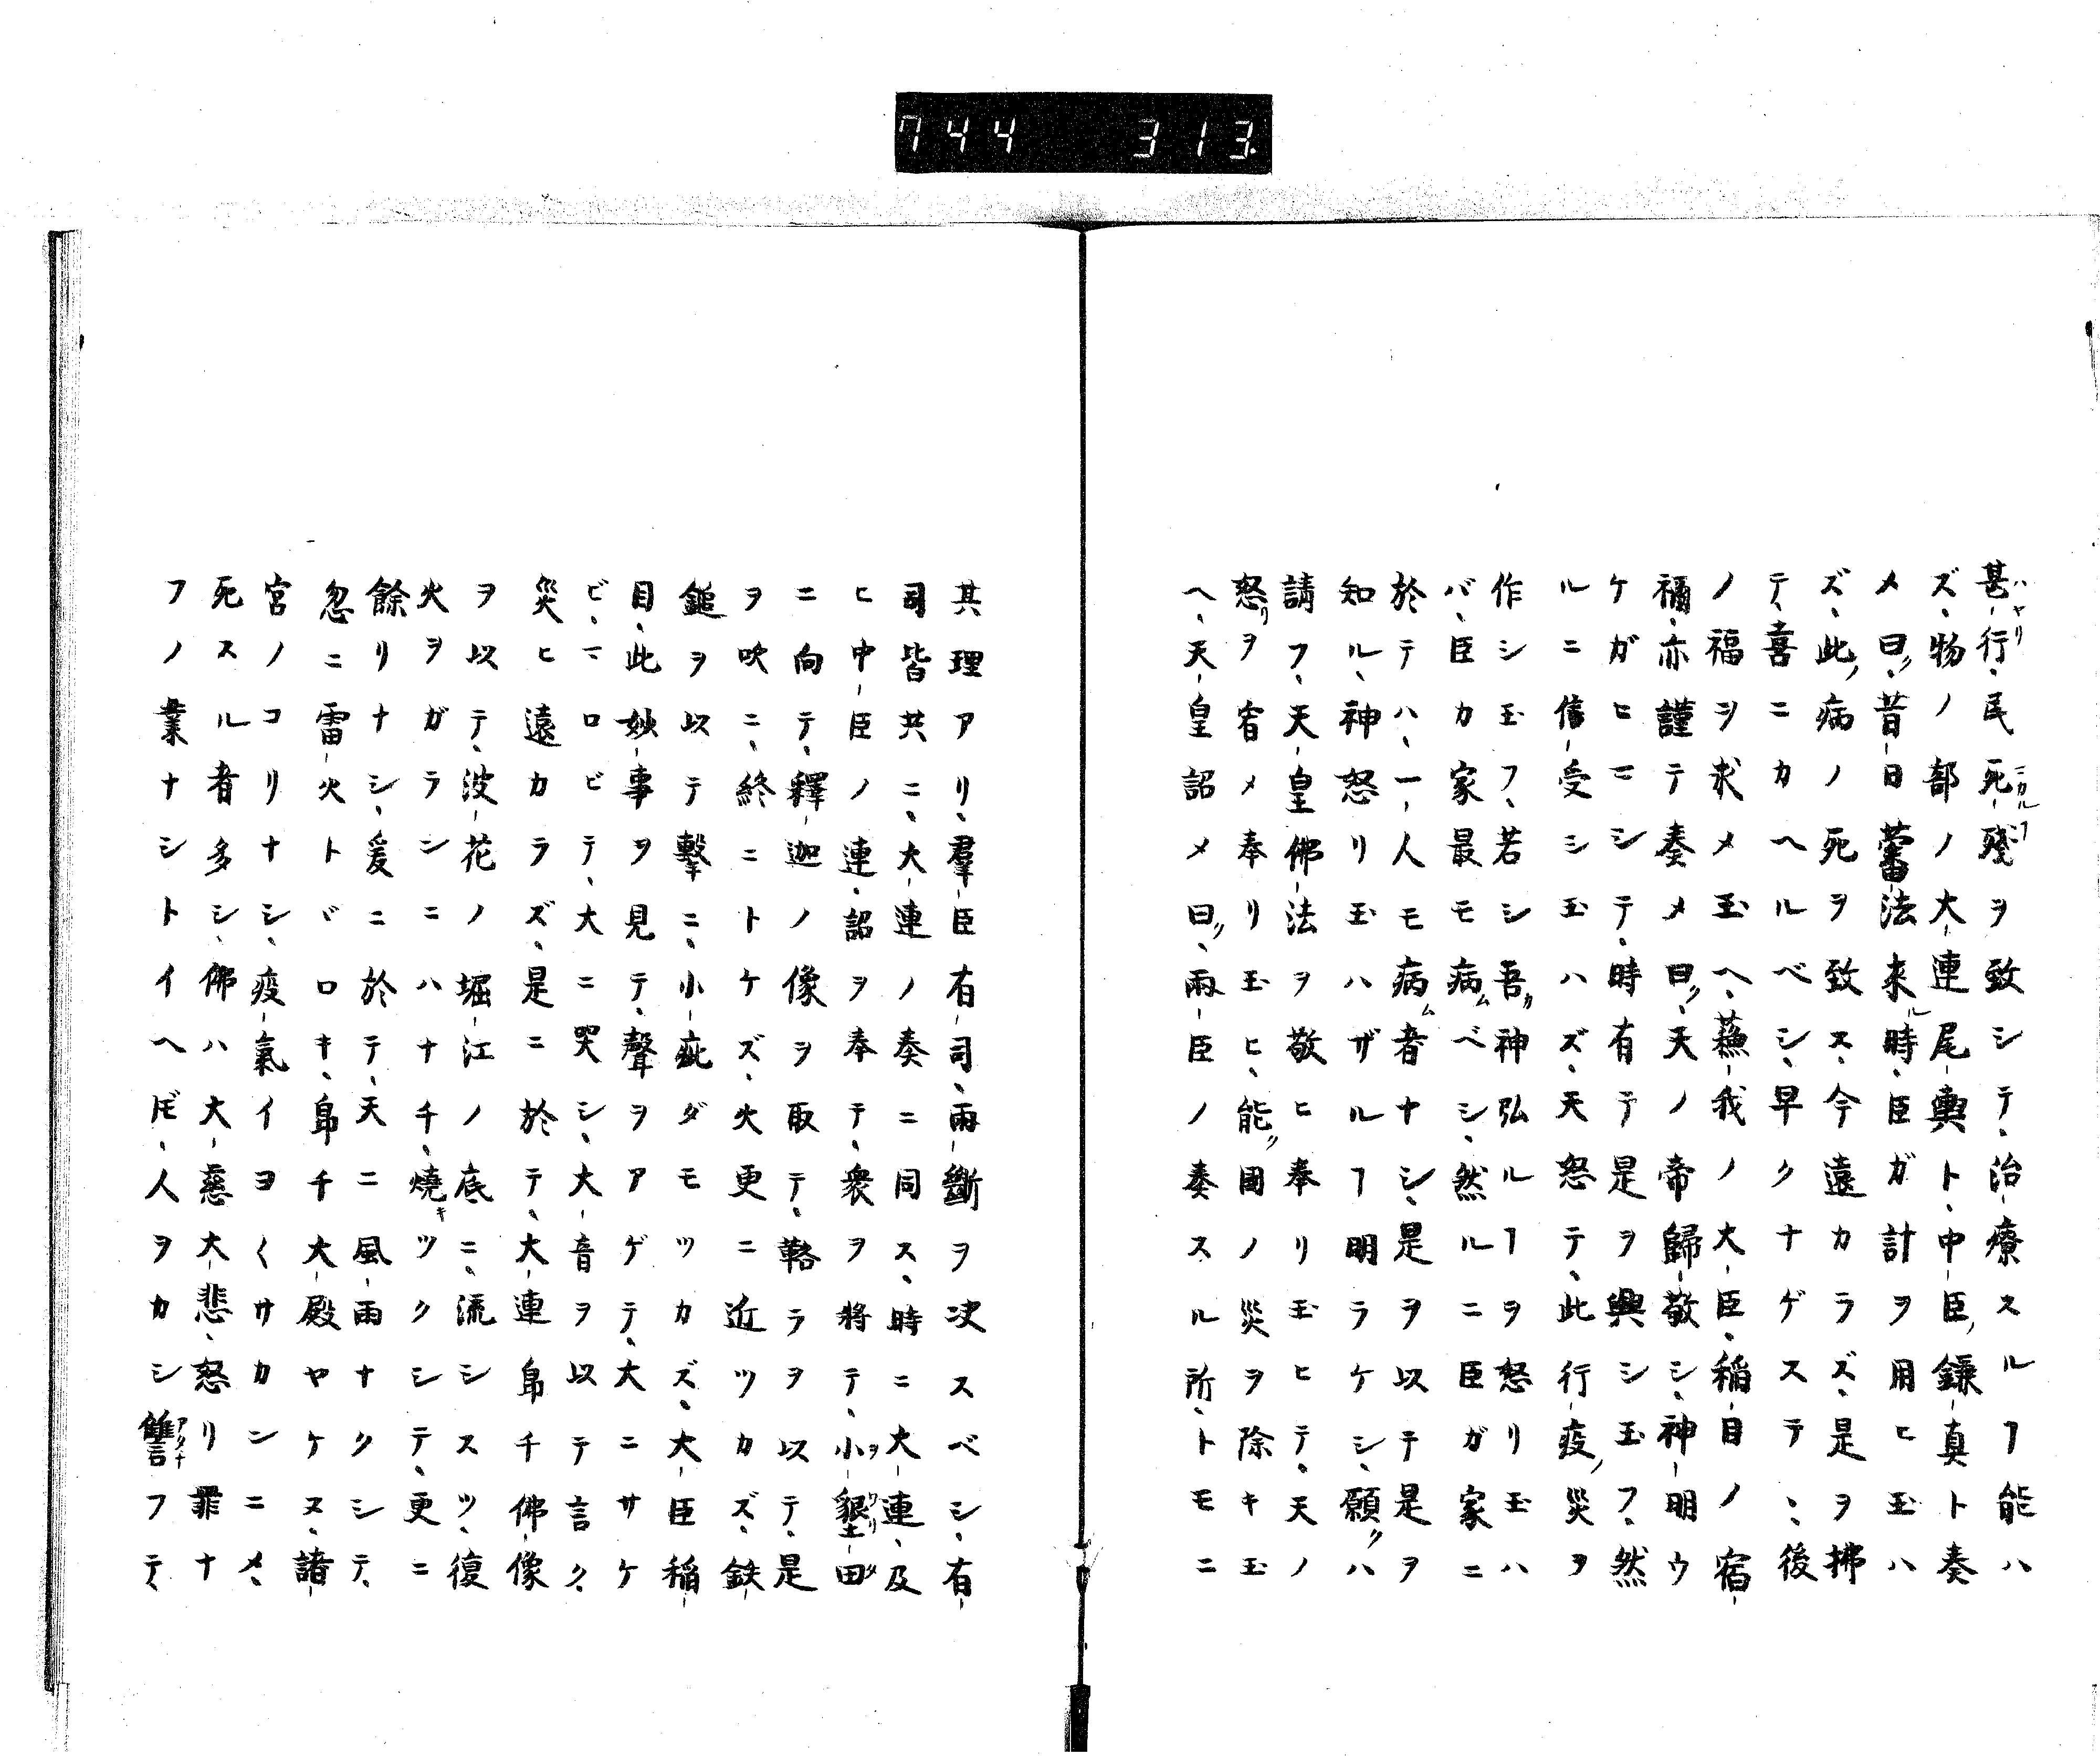 744 313
甚行、民死殘ヲ致シテ、治療スルヿ能ハ
ズ、物ノ部ノ大連尾輿ト、中臣鎌真ト奏
メ曰、昔日蕃法来ル時、臣ガ計ヲ用ヒ玉ハ
ズ、此病ノ死ヲ致ス、今遠カラズ、是ヲ拂
テ、喜ニカヘルベシ、早クナゲステ、後
ノ福ヲ求メ玉ヘ、蘓我ノ大臣、稲目ノ宿
祢、亦謹テ奏メ曰、天ノ帝歸敬シ、神明ウ
ケガヒニシテ、時有テ是ヲ興シ玉フ、然
ルニ信受シ玉ハズ、天怒テ、此行疫災ヲ
作シ玉フ、若シ吾神弘ルヿヲ怒リ玉ハ
バ、臣カ家最モ病ムベシ、然ルニ臣ガ家ニ
於テハ、一人モ病ム者ナシ、是ヲ以テ是ヲ
知ル、神怒リ玉ハザルヿ明ラケシ、願ハ
請フ、天皇佛法ヲ敬ヒ奉リ玉ヒテ、天ノ
怒リヲ宥メ奉リ玉ヒ、能國ノ災ヲ除キ玉
ヘ、天皇詔メ曰、兩臣ノ奏スル所、トモニ
其理アリ、羣臣有司、兩斷ヲ决スベシ、有
司皆共ニ、大連ノ奏ニ同ス、時ニ大連、及
ヒ中臣ノ連、詔ヲ奉テ、衆ヲ將テ、小墾田
ニ向テ、釋迦ノ像ヲ取テ、鞴ラヲ以テ、是
ヲ吹ニ、終ニトケズ、火更ニ近ツカズ、鉄
鎚ヲ以テ撃ニ、小疵ダモツカズ、大臣稲
目、此妙事ヲ見テ、聲ヲアゲテ、大ニサケ
ビ、マロビテ、大ニ哭シ、大音ヲ以テ言ク、
災ヒ遠カラズ、是ニ於テ、大連帛チ佛像
ヲ以テ、波花ノ堀江ノ底ニ、流シスツ、復
火ヲガラシニハナチ、燒キツクシテ、更ニ
餘リナシ、爰ニ於テ、天ニ風雨ナクシテ、
忽ニ雷火トヾロキ、帛チ大殿ヤケヌ、諸
宮ノコリナシ、疫氣イヨ〱サカンニメ、
死スル者多シ、佛ハ大慈大悲、怒リ罪ナ
フノ業ナシトイヘ𪜈、人ヲカシ讐フテ、